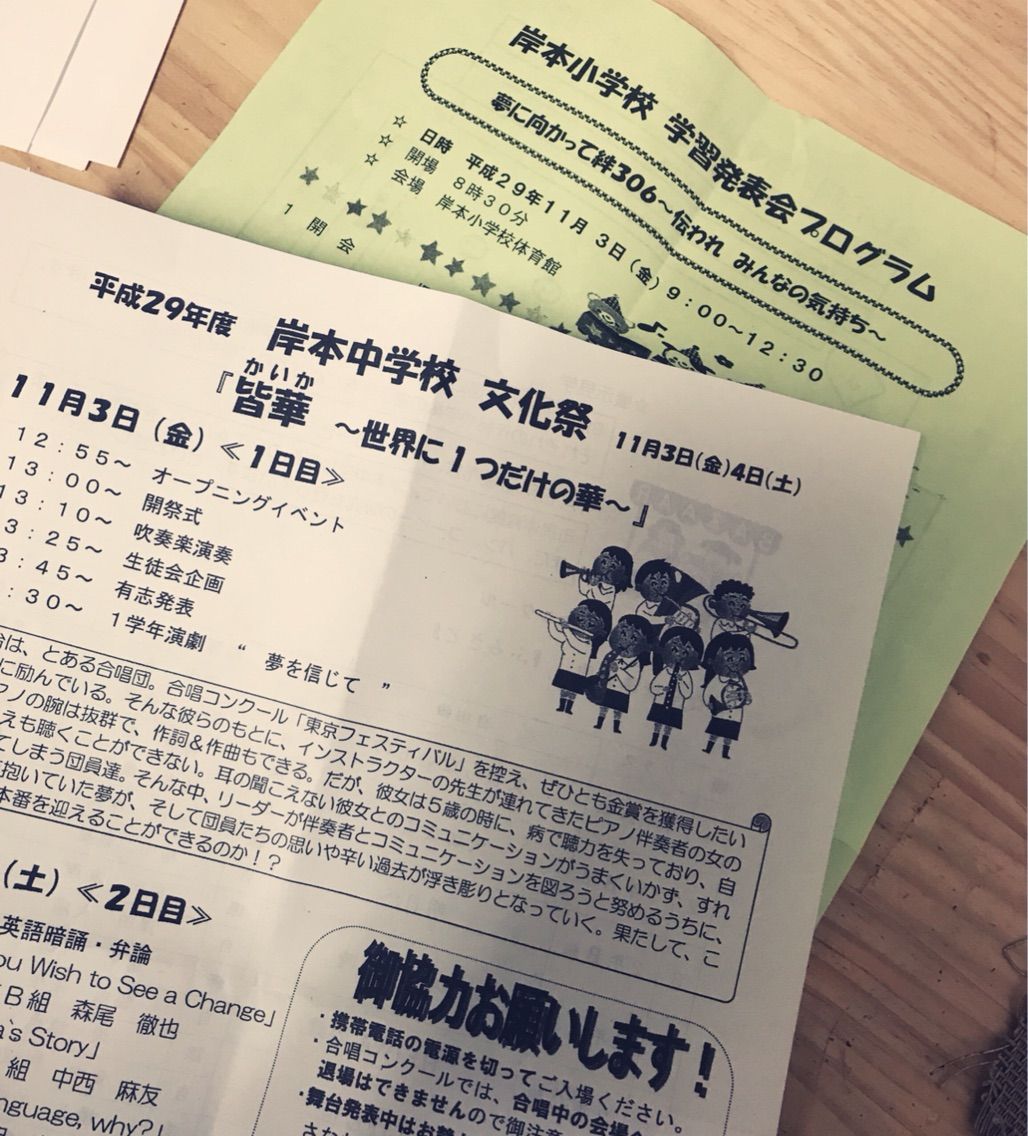 岸本小学校 学習発表会プログラム
夢に向かって絆306～伝われ みんなの気持ち～
☆ 日時 平成29年11月3日(金)9:00～12:30
☆ 開場 8時30分
☆ 会場 岸本小学校体育館
1 開会
平成29年度 岸本中学校 文化祭 11月3日(金)4日(土)
かいか
『皆華 ～世界に1つだけの華～』
11月3日(金)≪1日目≫
12:55～ オープニングイベント
13:00～ 開祭式
13:10～ 吹奏楽演奏
3:25～ 生徒会企画
3:45～ 有志発表
:30～ 1学年演劇 “ 夢を信じて ”
台は、とある合唱団。合唱コンクール「東京フェスティバル」を控え、ぜひとも金賞を獲得したい
に励んでいる。そんな彼らのもとに、インストラクターの先生が連れてきたピアノ伴奏者の女の
アノの腕は抜群で、作詞&作曲もできる。だが、彼女は5歳の時に、病で聴力を失っており、自
えも聴くことができない。耳の聞こえない彼女とのコミュニケーションがうまくいかず、すれ
てしまう団員達。そんな中、リーダーが伴奏者とコミュニケーションを図ろうと努めるうちに、
抱いていた夢が、そして団員たちの思いや辛い過去が浮き彫りとなっていく。果たして、こ
本番を迎えることができるのか！？
(土)≪2日目≫
英語暗誦・弁論
ou Wish to See a Change」
B組 森尾 徹也
a's Story」
組 中西 麻友
nguage, why?」
御協力お願いします！
・携帯電話の電源を切ってご入場ください。
・合唱コンクールでは、合唱中の会場
退場はできませんので御注意
・舞台発表中はお静